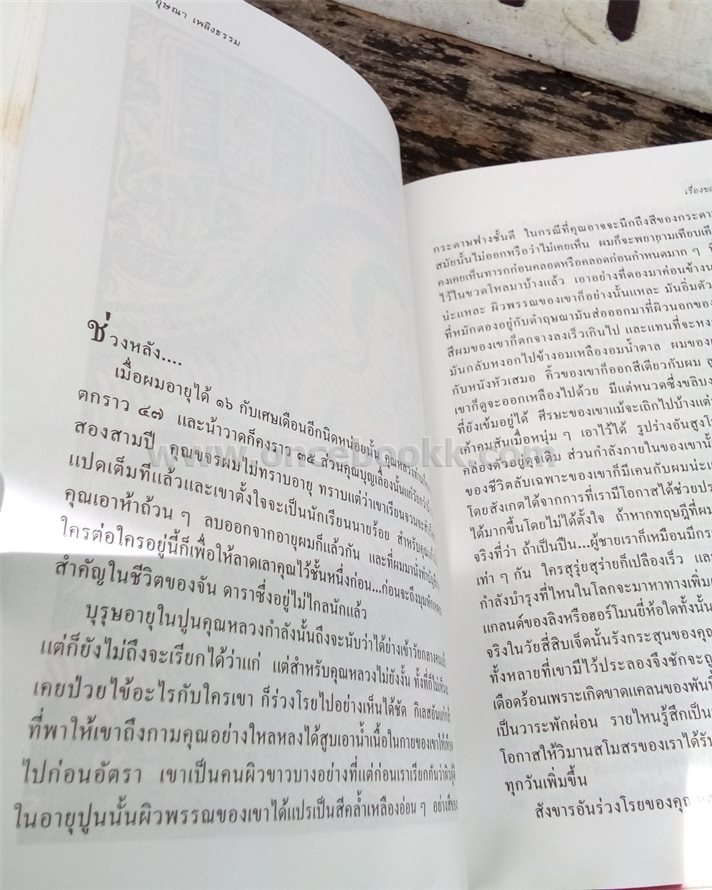 อุษณา เพลิงธรรม
ช่วงหลัง....
เมื่อผมอายุได้ ๑๖ กับเศษเดือนอีกนิดหน่อยนั้น คุณหลวงท่านก็
ตกราว ๔๗ และน้าวาดก็คงราว ๓๕ ส่วนคุณบุญเลื่องนั้นแก่วัยกว่า
สองสามปี คุณขจรผมไม่ทราบอายุ ทราบแต่ว่าเขาเรียนจวนจะ
แปดเต็มทีแล้วและเขาตั้งใจจะเป็นนักเรียนนายร้อย สำหรับคุณแก้ว
คุณเอาห้าถ้วน ๆ ลบออกจากอายุผมก็แล้วกัน และที่ผมมานั่ง
ใครต่อใครอยู่นี้ก็เพื่อให้ลาดเลาคุณไว้ชั้นหนึ่งก่อน...ก่อนจะถึง
สำคัญในชีวิตของจัน ดาราซึ่งอยู่ไม่ไกลนักแล้ว
บุรุษอายุในปูนคุณหลวงกำลังนั้นถึงจะนับว่าได้ย่างเข้าวัยกลางคน
แต่ก็ยังไม่ถึงจะเรียกได้ว่าแก่ แต่สำหรับคุณหลวงไม่ยังงั้น ทั้งที่ก็ไม่
เคยป่วยไข้อะไรกับใครเขา ก็ร่วงโรยไปอย่างเห็นได้ชัด กิเลสอัน
ที่พาให้เขาถึงกามคุณอย่างใหลหลงได้สูบเอาน้ำเนื้อในกายของเขาให้
ไปก่อนอัตรา เขาเป็นคนผิวขาวบางอย่างที่แต่ก่อนเราเรียกกันว่า
ในอายุปูนนั้นผิวพรรณของเขาได้แปรเป็นสีคล้ำเหลืองอ่อน ๆ อย่าง
www.oncebookk.com
เรื่องของ
กระดาษฟางชั้นดี ในกรณีที่คุณอาจจะนึกถึงสีของกระดาษ
สมัยนั้นไม่ออกหรือว่าไม่เคยเห็น ผมก็จะพยายามเทียบเคียง
คงเคยเห็นทารกก่อนคลอดหรือคลอดก่อนกำหนดมาก ๆ
ไว้ในขวดโหลมาบ้างแล้ว เอาอย่างที่ดองมาค่อนข้าง
น่ะแหละ ผิวพรรณของเขาก็อย่างนั้นแหละ มันอิ่มตัว
ที่หมักดองอยู่กับดำฤษณามันส่อออกมาที่ผิวนอกของ
สีผมของเขาก็ตกจางลงเร็วเกินไป และแทนที่จะหงอก
มันกลับหงอกไปข้างอมเหลืองอมน้ำตาล ผมของ
กับหนังหัวเสมอ คิ้วของเขาก็ออกสีเดียวกับผม
เขาก็ดูจะออกเหลืองไปด้วย มีแต่หนวดซึ่งขลิบ
ที่ยังเข้มอยู่ได้ ศีรษะของเขาแม้จะเถิกไปบ้างแต่
เค้าคมสันเมื่อหนุ่ม ๆ เอาไว้ได้ รูปร่างอันสูงโ
คล่องตัวอยู่ดุจเดิม ส่วนกำลังภายในของเขานั้น
ของชีวิตลับเฉพาะของเขาก็มีเคนกับผมน่ะ
โดยสังเกตได้จากการที่เรามีโอกาสได้ช่วย
ได้มากขึ้นโดยไม่ได้ตั้งใจ ถ้าหากทฤษฎีที่
จริงที่ว่า ถ้าเป็นปืน...ผู้ชายเราก็เหมือนมี
เท่า ๆ กัน ใครสุรุ่ยสุร่ายก็เปลืองเร็ว และ
กำลังบำรุงที่ไหนในโลกจะมาหาทางเพิ่ม
แกลนด์ของลิงหรือฮอร์โมนยี่ห้อใดทั้งนั้น
จริงในวัยสี่สิบเจ็ดนั้นรังกระสุนของคุณ
ทั้งหลายที่เขามีไว้ประลองจึงชักจะถูก
เดือดร้อนเพราะเกิดขาดแคลนของพันนี้
เป็นวาระพักผ่อน รายไหนรู้สึกเป็น
โอกาสให้วิมานสโมสรของเราได้รับ
ทุกวันเพิ่มขึ้น
สังขารอันร่วงโรยของคุณ